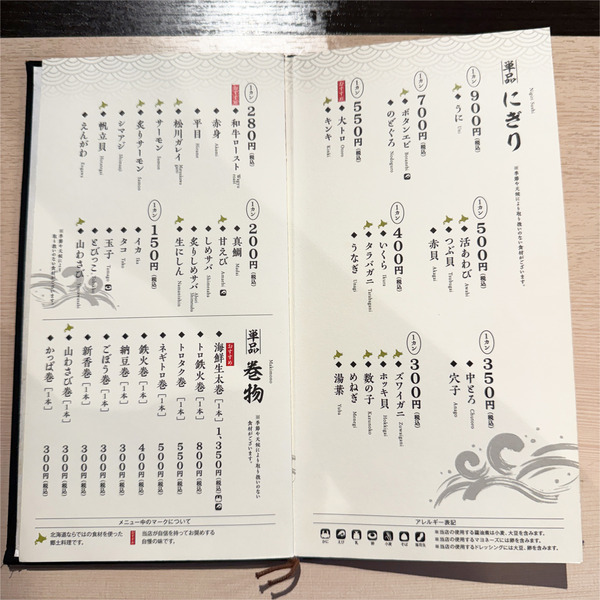 単品 にぎり
Nigiri Sushi
※季節や天候により取り扱いのない食材がございます。
1カン 900円(税込)
うに Uni
1カン 700円(税込)
ボタンエビ Botanebi
のどぐろ Nodoguro
1カン 550円(税込)
おすすめ
大トロ Otoro
キンキ Kinki
1カン 500円(税込)
活あわび Awabi
つぶ貝 Tsubugai
赤貝 Akagai
1カン 400円(税込)
いくら Ikura
タラバガニ Tarabagani
うなぎ Unagi
1カン 350円(税込)
中とろ Chutoro
穴子 Anago
1カン 300円(税込)
ズワイガニ Zuwaigani
ホッキ貝 Hokkigai
数の子 Kazunoko
めねぎ Menegi
湯葉 Yuba
アレルギー表記
かに えび 乳 卵 小麦 そば 落花生
※当店の使用する醤油煮は小麦、大豆を含みます。
※当店の使用するマヨネーズには卵を含みます。
※当店の使用するドレッシングには大豆、卵を含みます。
1カン 280円(税込)
おすすめ
和牛ロースト
赤身 Akami
平目 Hirame
松川ガレイ
サーモン Samon
炙りサーモン
シマアジ Shimaaji
帆立貝 Hotategai
えんがわ Engawa
1カン 200円(税込)
真鯛 Madai
甘えび Amaebi
しめサバ Shimesaba
炙りしめサバ
生にしん Namanishin
1カン 150円(税込)
イカ Ika
タコ Tako
玉子 Tamago
とびっこ
山わさび
※季節や天候により取り扱いのない食材がございます。
単品 巻物
Makimono
※季節や天候により取り扱いのない食材がございます。
おすすめ
海鮮生太巻[1本] 1,350円(税込)
トロ鉄火巻[1本] 800円(税込)
トロタク巻[1本] 550円(税込)
ネギトロ巻[1本] 500円(税込)
鉄火巻[1本] 400円(税込)
納豆巻[1本] 300円(税込)
ごぼう巻[1本] 300円(税込)
新香巻[1本] 300円(税込)
山わさび巻[1本] 300円(税込)
かっぱ巻[1本] 300円(税込)
メニュー中のマークについて
北海道ならではの食材を使った
郷土料理です。
当店が自信を持ってお奨めする
自慢の味です。